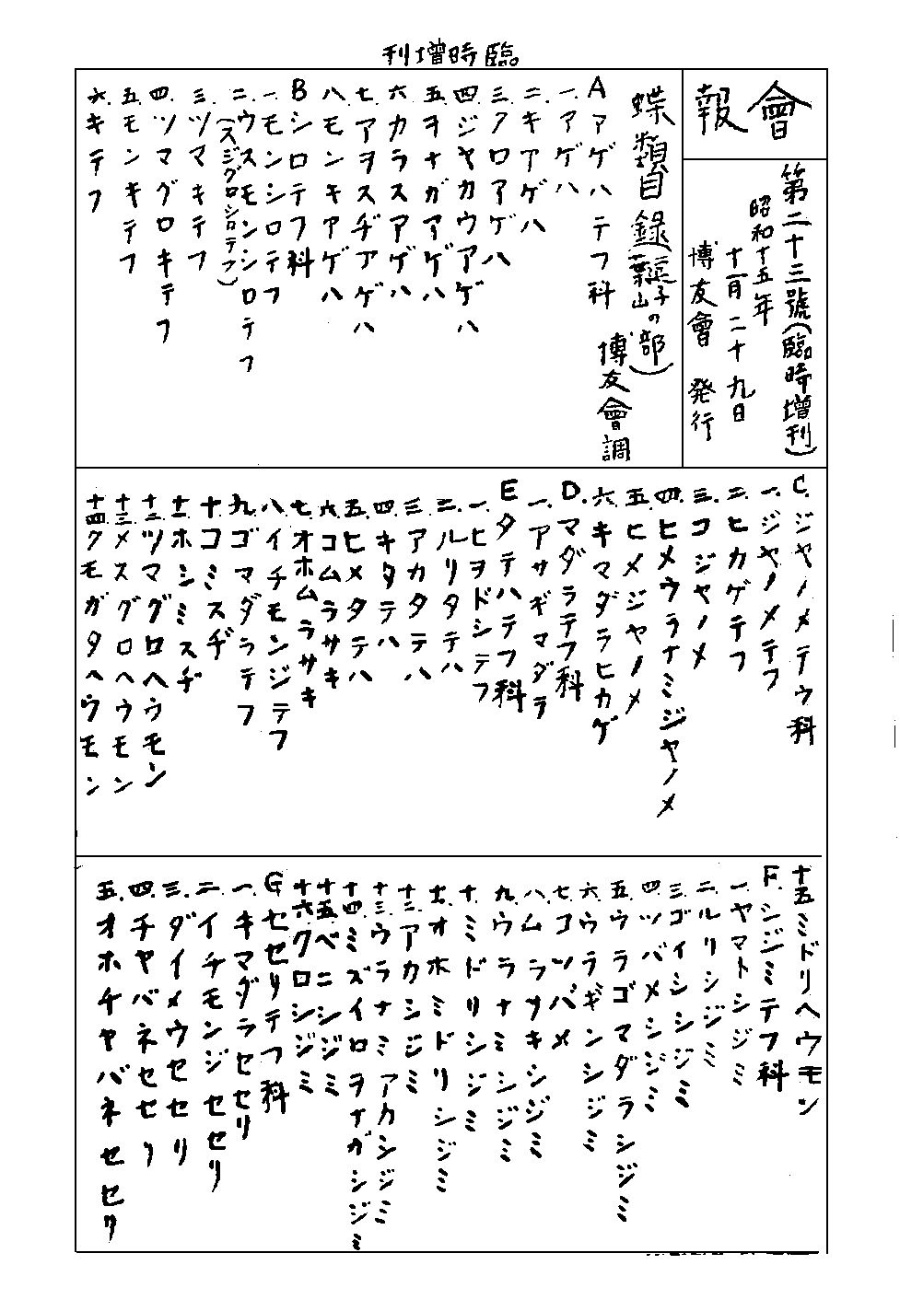 臨時增刊
會報
第二十三號(臨時增刊)
昭和十五年
十一月二十九日
博友會 発行
蝶類目録(逗子葉山の部)
博友會調
A アゲハテフ科
一.アゲハ
二.キアゲハ
三.クロアゲハ
四.ジヤカウアゲハ
五.ヲナガアゲハ
六.カラスアゲハ
七.アヲスヂアゲハ
八.モンキアゲハ
B シロテフ科
一.モンシロテフ
二.ウスモンシロテフ
(スジグロシロテフ)
三.ツマキテフ
四.ツマグロキテフ
五.モンキテフ
六.キテフ
C.ジヤノメテウ科
一.ジヤノメテフ
二.ヒカゲテフ
三.コジヤノメ
四.ヒメウラナミジヤノメ
五.ヒメジヤノメ
六.キマダラヒカゲ
D.マダラテフ科
一.アサギマダラ
E タテハテフ科
一.ヒヲドシテフ
二.ルリタテハ
三.アカタテハ
四.キタテハ
五.ヒメタテハ
六.コムラサキ
七.オホムラサキ
八.イチモンジテフ
九.ゴマダラテフ
十.コミスヂ
十一.ホシミスヂ
十二.ツマグロヘウモン
十三.メスグロヘウモン
十四.クモガタヘウモン
十五.ミドリヘウモン
F.シジミテフ科
一.ヤマトシジミ
二.ルリシジミ
三.ゴイシシジミ
四.ツバメシジミ
五.ウラゴマダラシジミ
六.ウラギンシジミ
七.コツバメ
八.ムラサキシジミ
九.ウラナミシジミ
十.ミドリシジミ
十一.オホミドリシジミ
十二.アカシジミ
十三.ウラナミアカシジミ
十四.ミズイロヲナガシジミ
十五.ベニシジミ
十六.クロシジミ
G セセリテフ科
一.キマダラセセリ
二.イチモンジセセリ
三.ダイメウセセリ
四.チヤバネセセリ
五.オホチヤバネセセリ